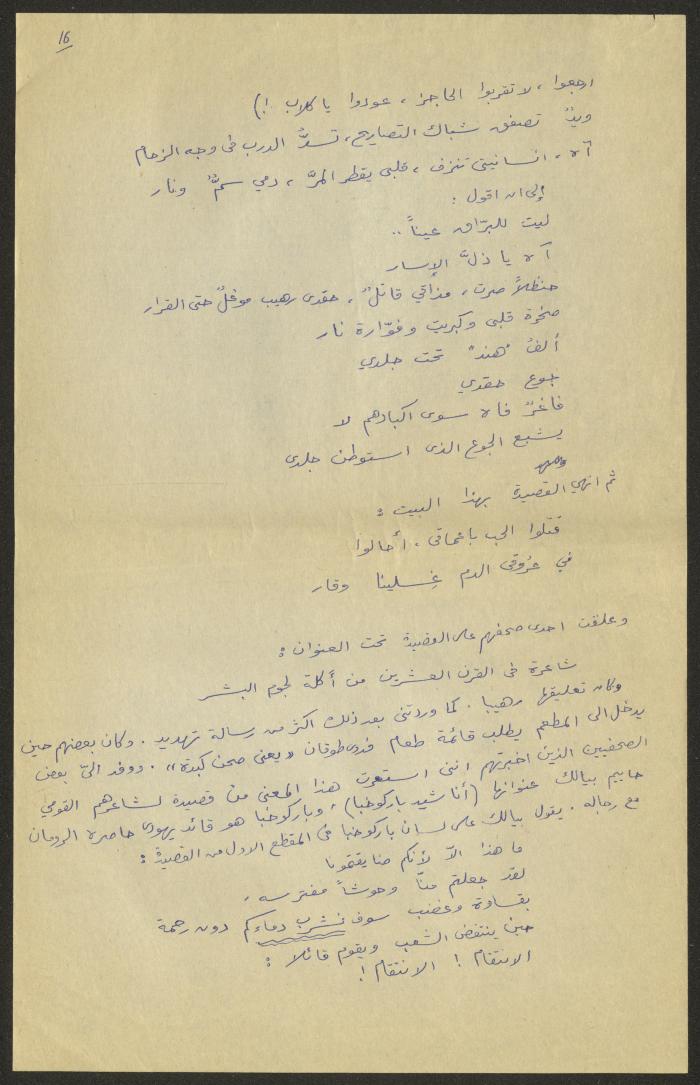 16
ارجعوا ، لا تقربوا الحاجز ، عودوا يا كلاب !)
ويدٌ تصفق شباك التصاريح، تسدُّ الدرب في وجه الزحام
آه ، انسانيتي تنزف ، قلبي يقطر المرَّ ، دمي سمٌّ ونار
إلى ان اقول :
ليت للبرّاق عيناً ..
آه يا ذلَّ الإسار
حنظلاً صرت ، مذاقي قاتلٌ ، حقدي رهيب موغلٌ حتى القرار
صخرة قلبي وكبريت وفوّارة نار
ألفُ "هند" تحت جلدي
جوع حقدي
فاغرٌ فاه سوى اكبادهم لا
يشبع الجوع الذي استوطن جلدي
ثم انهي القصيدة بهذا البيت :
قتلوا الحب باعماقي ، أحالوا
في عروقي الدم غسلينا وقار
وعلقت احدى صحفهم على القصيدة تحت العنوان :
شاعرة في القرن العشرين من أكلة لحوم البشر
وكان تعليقها رهيبا . كما وردتني بعد ذلك اكثر من رسالة تهديد . وكان بعضهم حين
يدخل الى المطعم يطلب قائمة طعام فدوى طوقان «يعني صحن كبدة» . ووفد اليّ بعض
الصحفيين الذين اخبرتهم انني استعرت هذا المعنى من قصيدة لشاعرهم القومي
حاييم بيالك عنوانها (أناشيد باركوخبا) ، وباركوخبا هو قائد يهودي حاصره الرومان
مع رجاله . يقول بيالك على لسان باركوخبا في المقطع الاول من القصيدة :
ما هذا الاّ لأنكم ضايقتمونا
لقد جعلتم منّا وحوشاً مفترسه ،
بقساوة وغضب سوف نشرب دماءكم دون رحمة
حين ينتفض الشعب ويقوم قائلا :
الانتقام ! الانتقام !